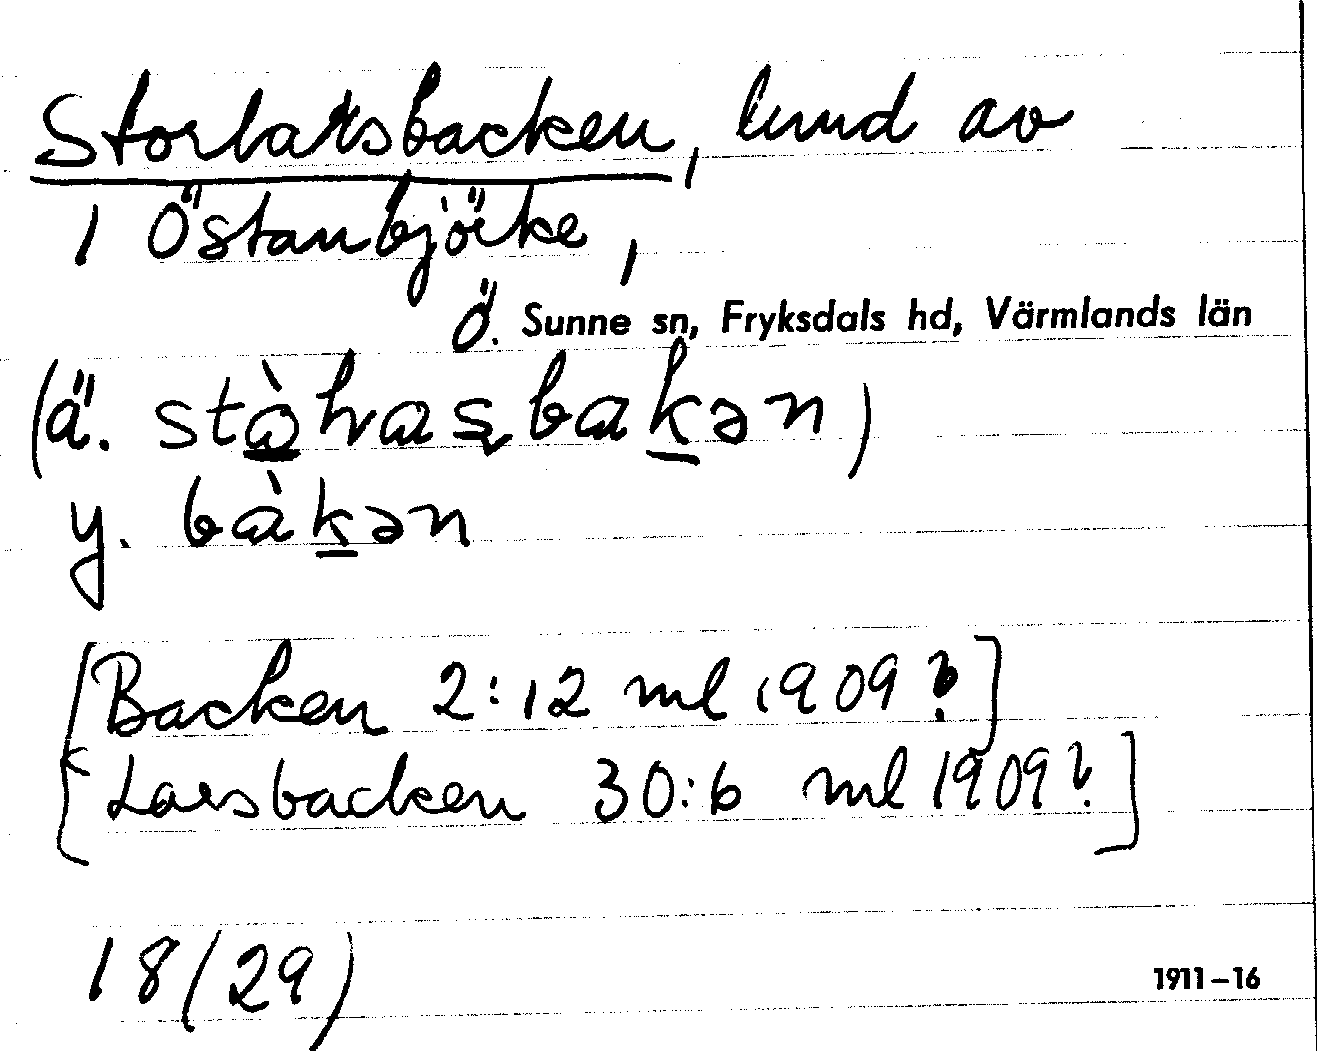 Storlarsbacken, lund av
i Östanbjörke,
Ö. Sunne sn, Fryksdals hd, Värmlands län
(ä. stàlvasbakən)
y. bàkən
[Backen 2:12 ml 1909?]
[Larsbacken 30:6 ml 1909?]
18(29)
1911–16